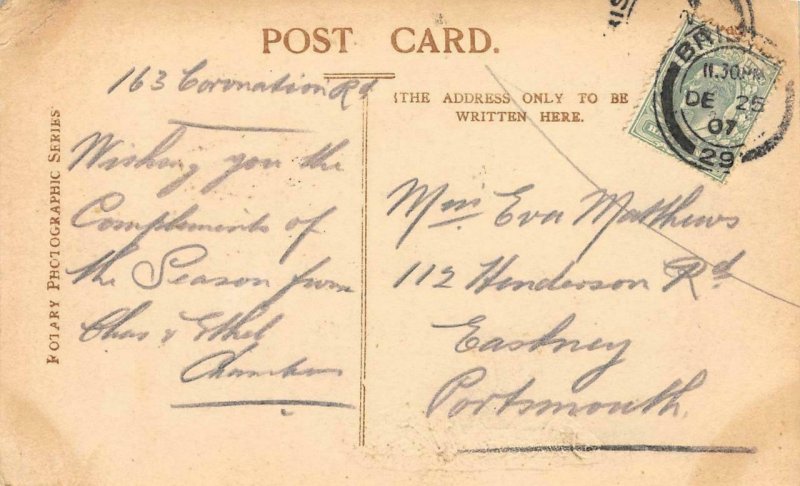 POST CARD.
163 Coronation Rd
Wishing you the
Complements of
the Season from
Chas & Ethel
Chambers
ROTARY PHOTOGRAPHIC SERIES
(THE ADDRESS ONLY TO BE
WRITTEN HERE.
Miss Eva Mathews
112 Henderson Rd
Eastney
Portsmouth
11.30PM
DE 25
07
29